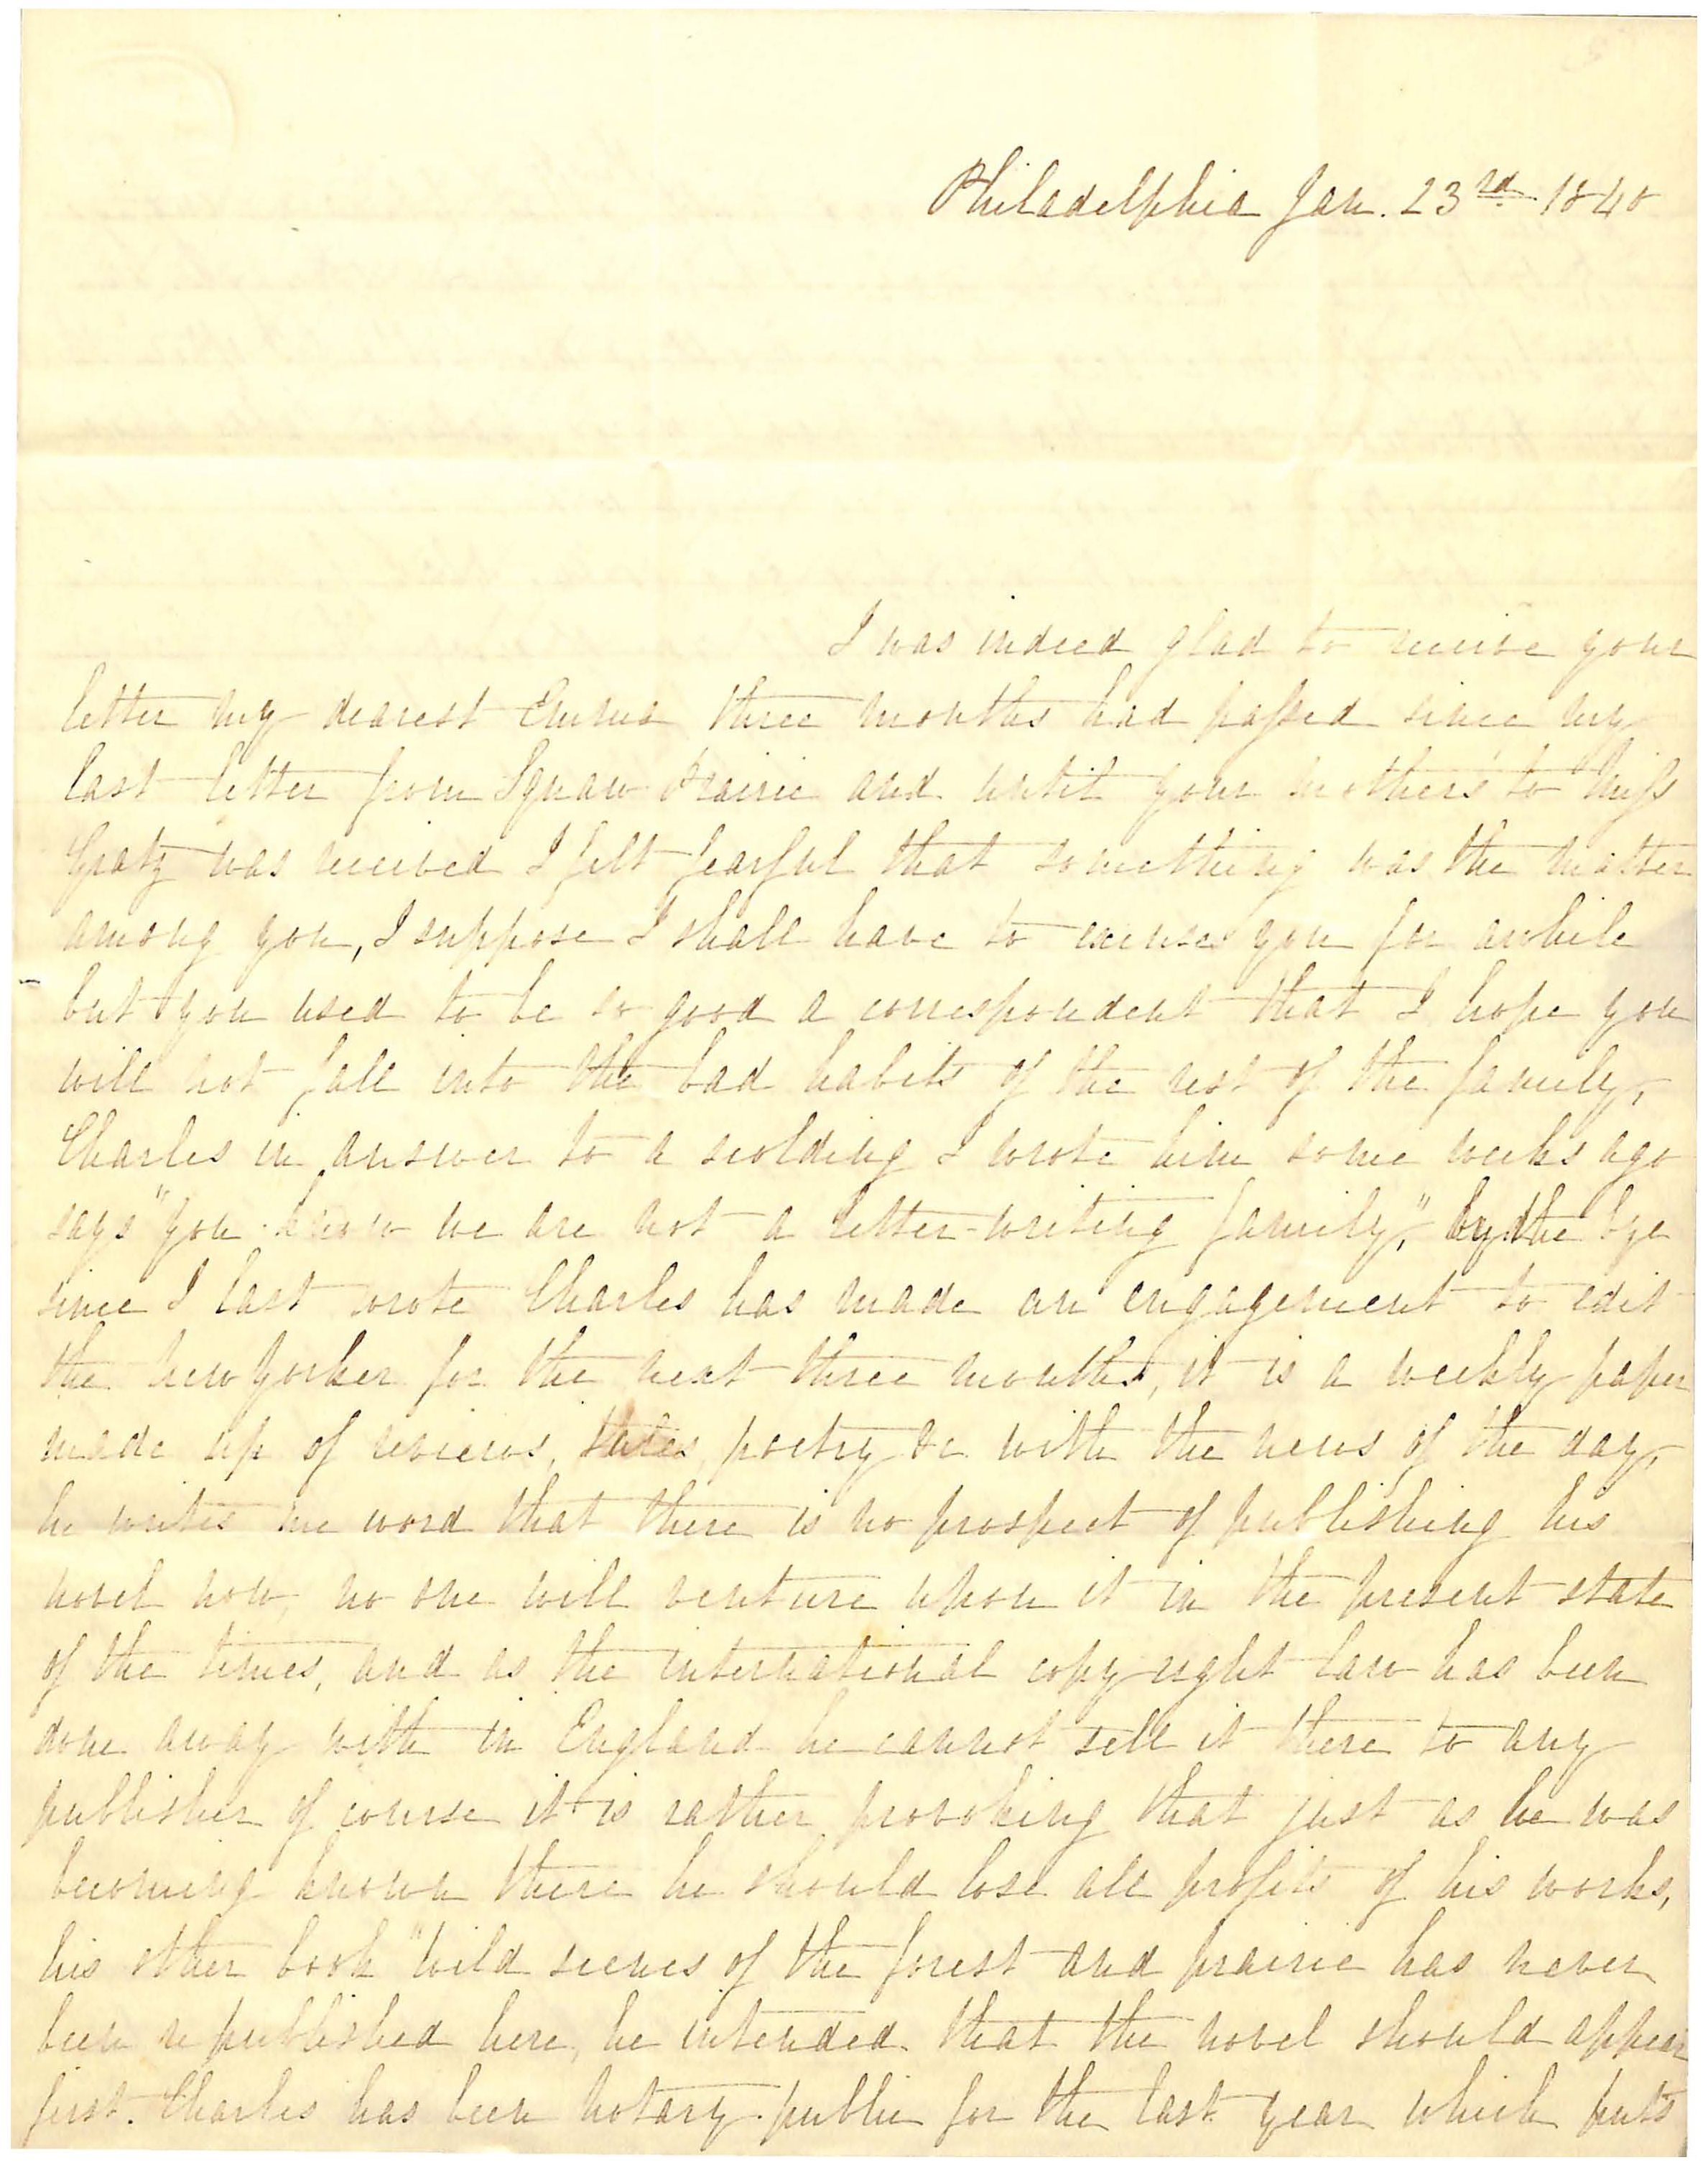 Philadelphia Jan. 23rd. 1840
I was indeed glad to receive your
letter my dearest Emma three months had passed since my
last letter from Squaw Prairie and until your mother's to Miss
Gratz was received I felt fearful that something was the matter
among you, I suppose I shall have to excuse you for awhile
but you used to be so good a correspondent that I hope you
will not fall into the bad habits of the rest of the family,
Charles in answer to a scolding I wrote him some weeks ago
says "you know we are not a letter-writing family," by the bye
since I last wrote Charles has made an engagement to edit
the New Yorker for the next three months, it is a weekly paper
made up of reviews, tales, poetry &c with the news of the day,
he writes me word that there is no prospect of publishing his
novel now, no one will venture upon it in the present state
of the times, and as the international copy right law has been
done away with in England he cannot sell it there to any
publisher of course it is rather provoking that just as he was
becoming known there he should lose all profits of his works,
his other book "Wild scenes of the forest and prairie has never
been republished here, he intended that the novel should appear
first. Charles has been notary-public for the last year which puts